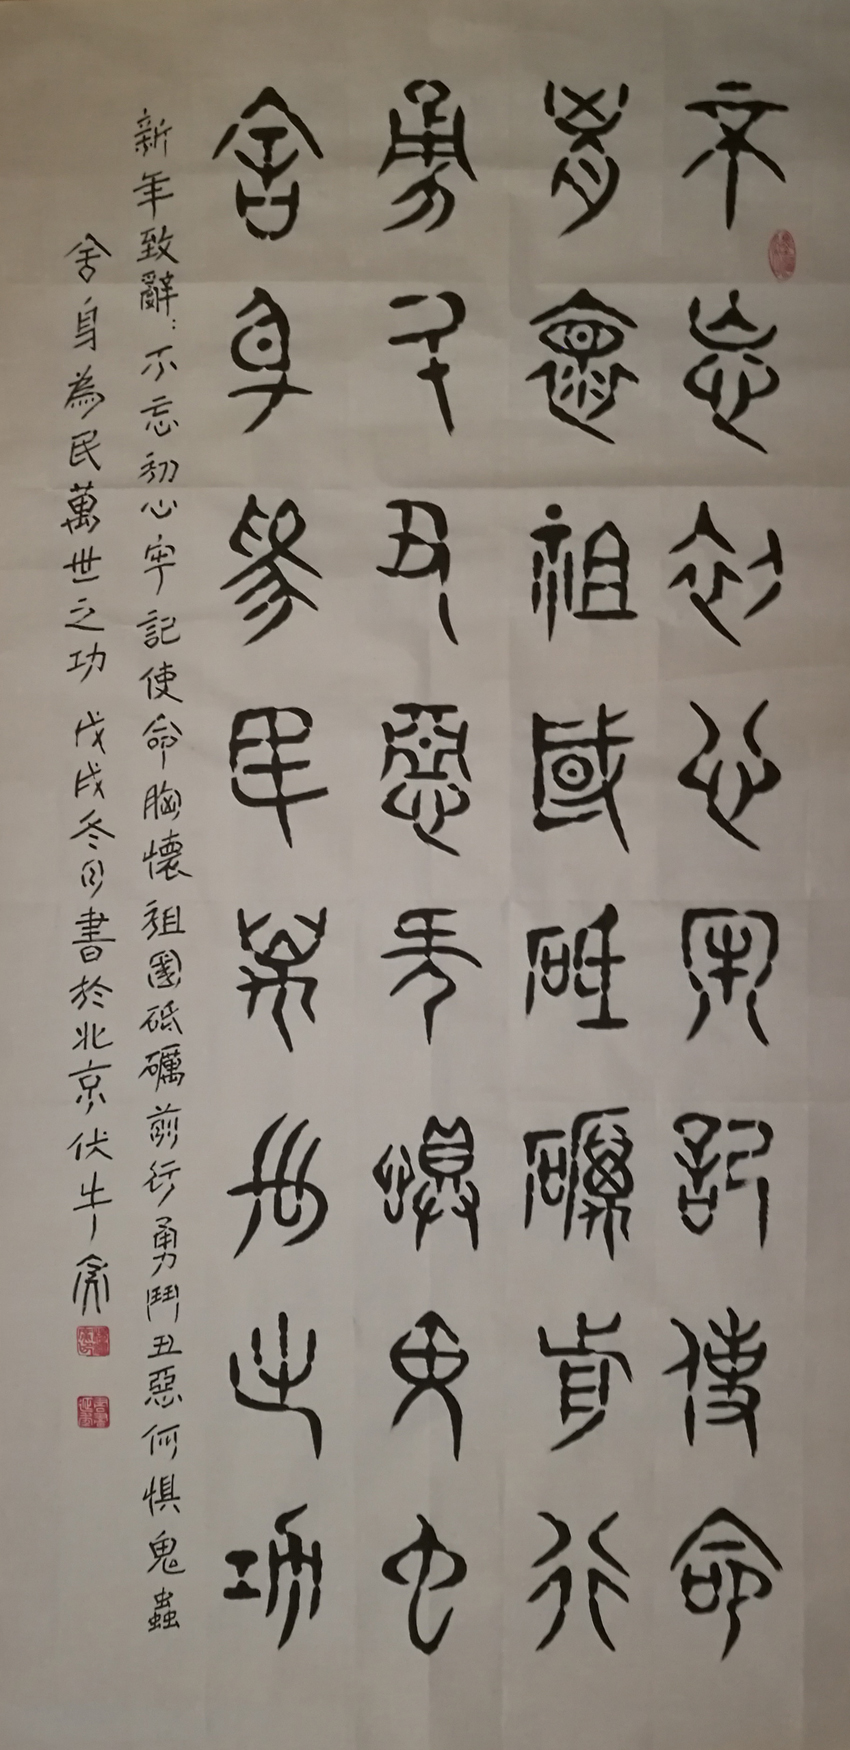 不忘初心牢記使命
胸懷祖國砥礪前行
勇鬥丑惡何懼鬼蟲
舍身為民萬世之功
新年致辭：不忘初心牢記使命胸懷祖國砥礪前行勇鬥丑惡何懼鬼蟲
舍身為民萬世之功 戊戌冬月書於北京伏牛